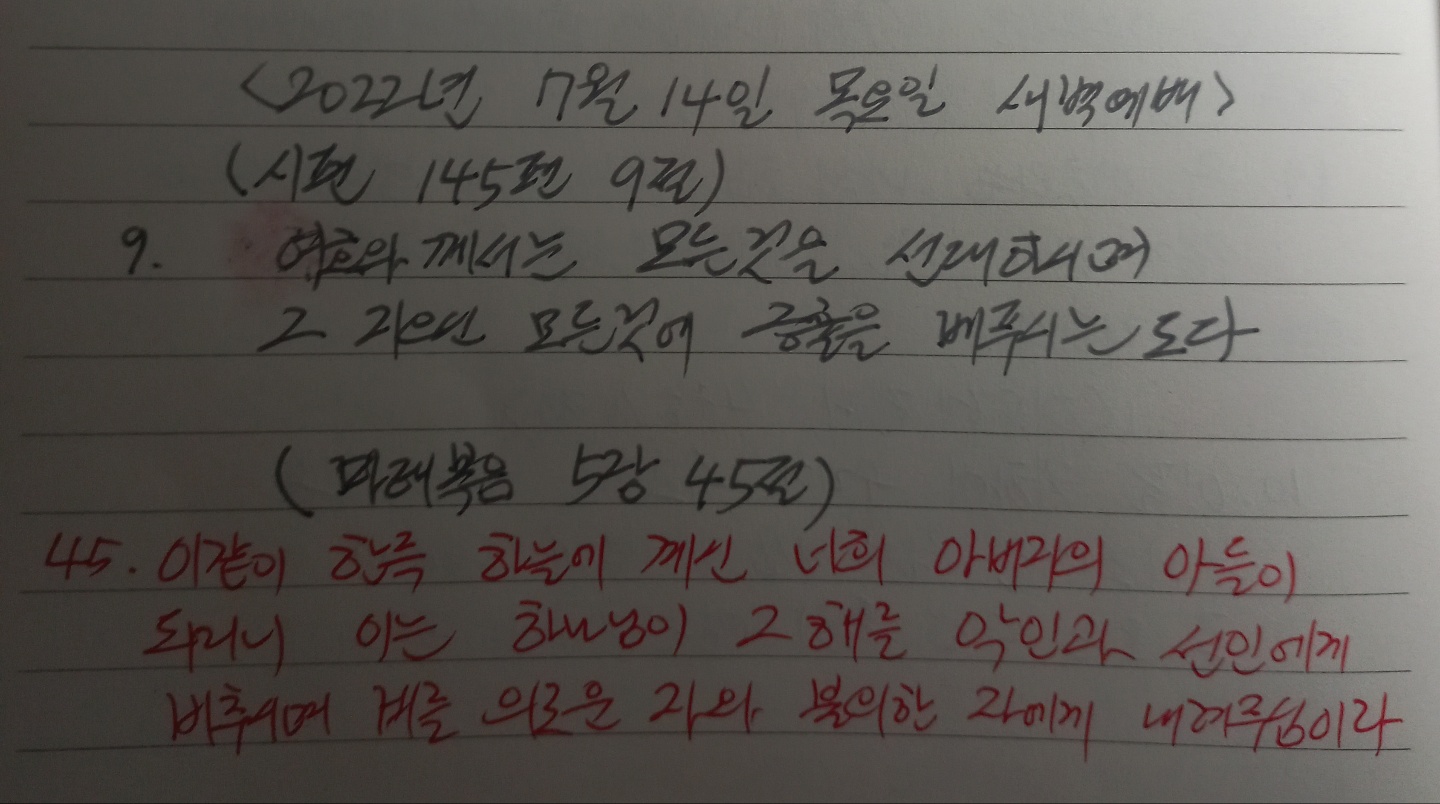 <2022년 7월 14일 목요일 새벽예배>
(시편 145편 9절)
9. 여호와께서는 모든것을 선대하시며
그 지으신 모든것에 긍휼을 베푸시는도다
(마태복음 5장 45절)
45. 이같이 한즉 하늘에 계신 너희 아버지의 아들이
되리니 이는 하나님이 그 해를 악인과 선인에게
비추시며 비를 의로운 자와 불의한 자에게 내려주심이라